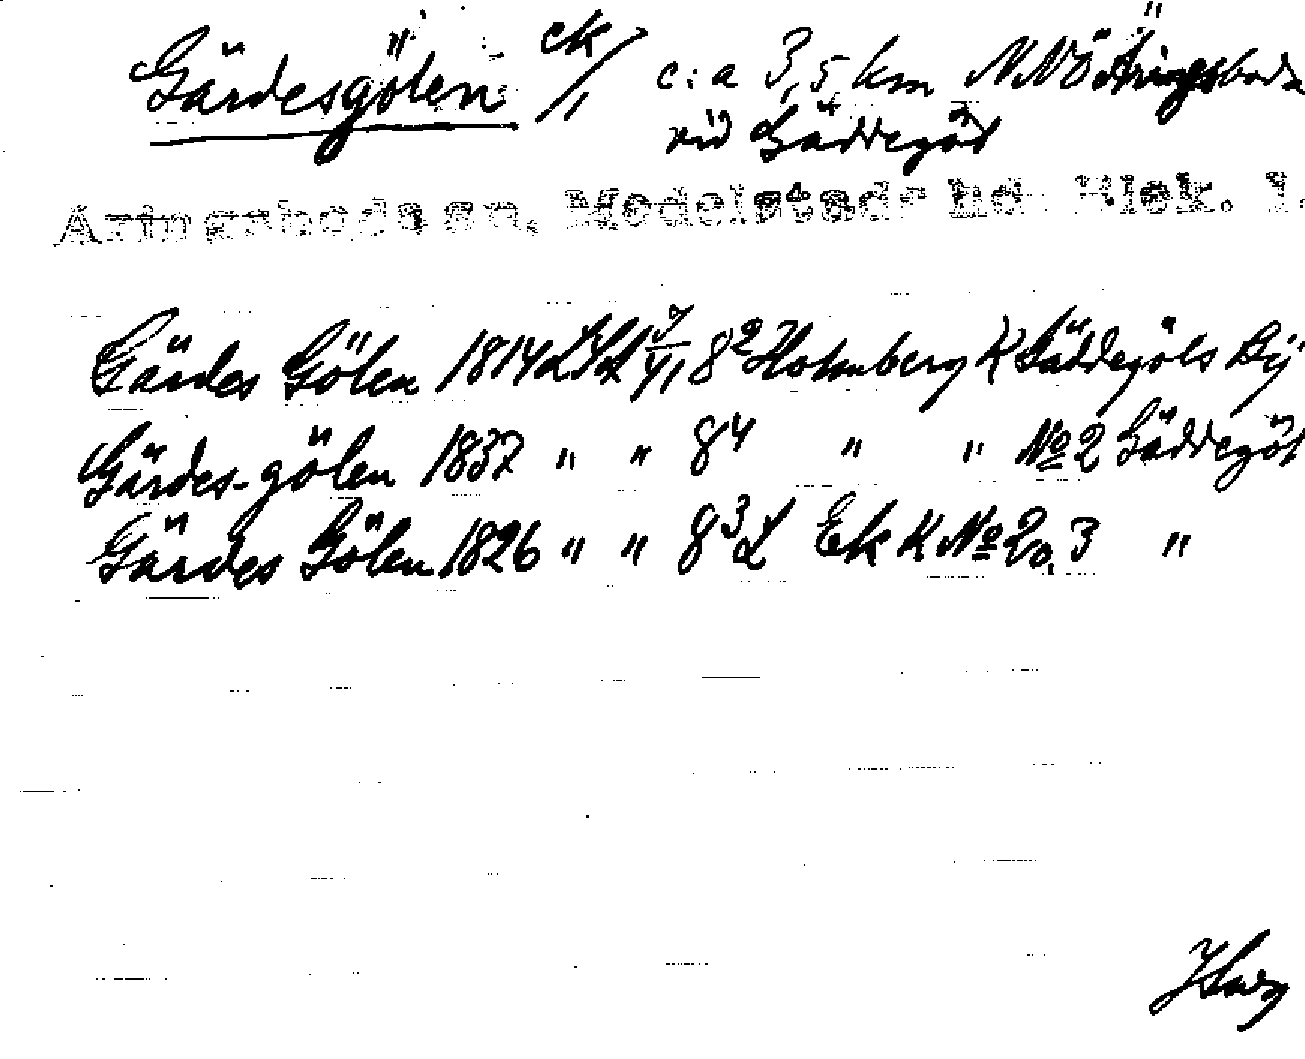 Gärdesgölen ek/, c:a 3,5 km NNÖ Äringsboda
vid Gäddegöl
Aringsboda sn, Medelstads hd Blek. l.
Gärdes Gölen 1814 8² Holmberg K Gäddegöls By
Gärdes-gölen 1837 " " 8⁴ " " № 2 Gäddegöl
Gärdes Gölen 1826 " " 8³ L Ek K № 2 o. 3 "